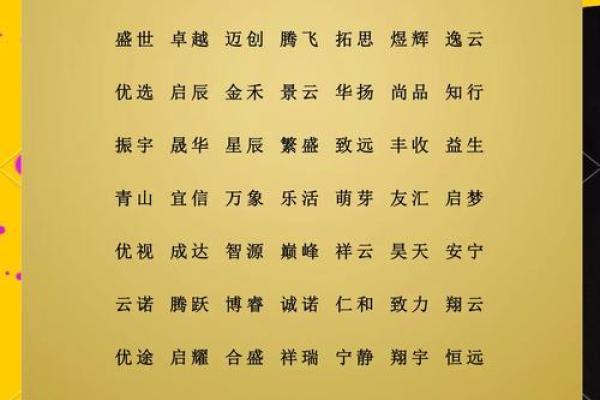 盛世 卓越 迈创 腾飞 拓思 煜辉 逸云
优选 启辰 金禾 景云 华扬 尚品 知行
振宇 晟华 星辰 繁盛 致远 丰收 益生
青山 宜信 万象 乐活 萌芽 友汇 启梦
优视 成达 智源 巅峰 祥云 昊天 安宁
云诺 腾跃 博睿 诚诺 仁和 致力 翔云
优途 启耀 合盛 祥瑞 宁静 翔宇 恒远